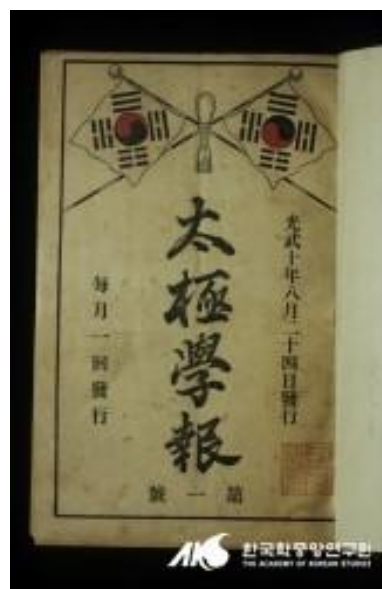 光武十年八月二十四日發行
太極學報
每月一回發行
第一號
AKS 한국학중앙연구원
THE ACADEMY OF KOREAN STUDIES